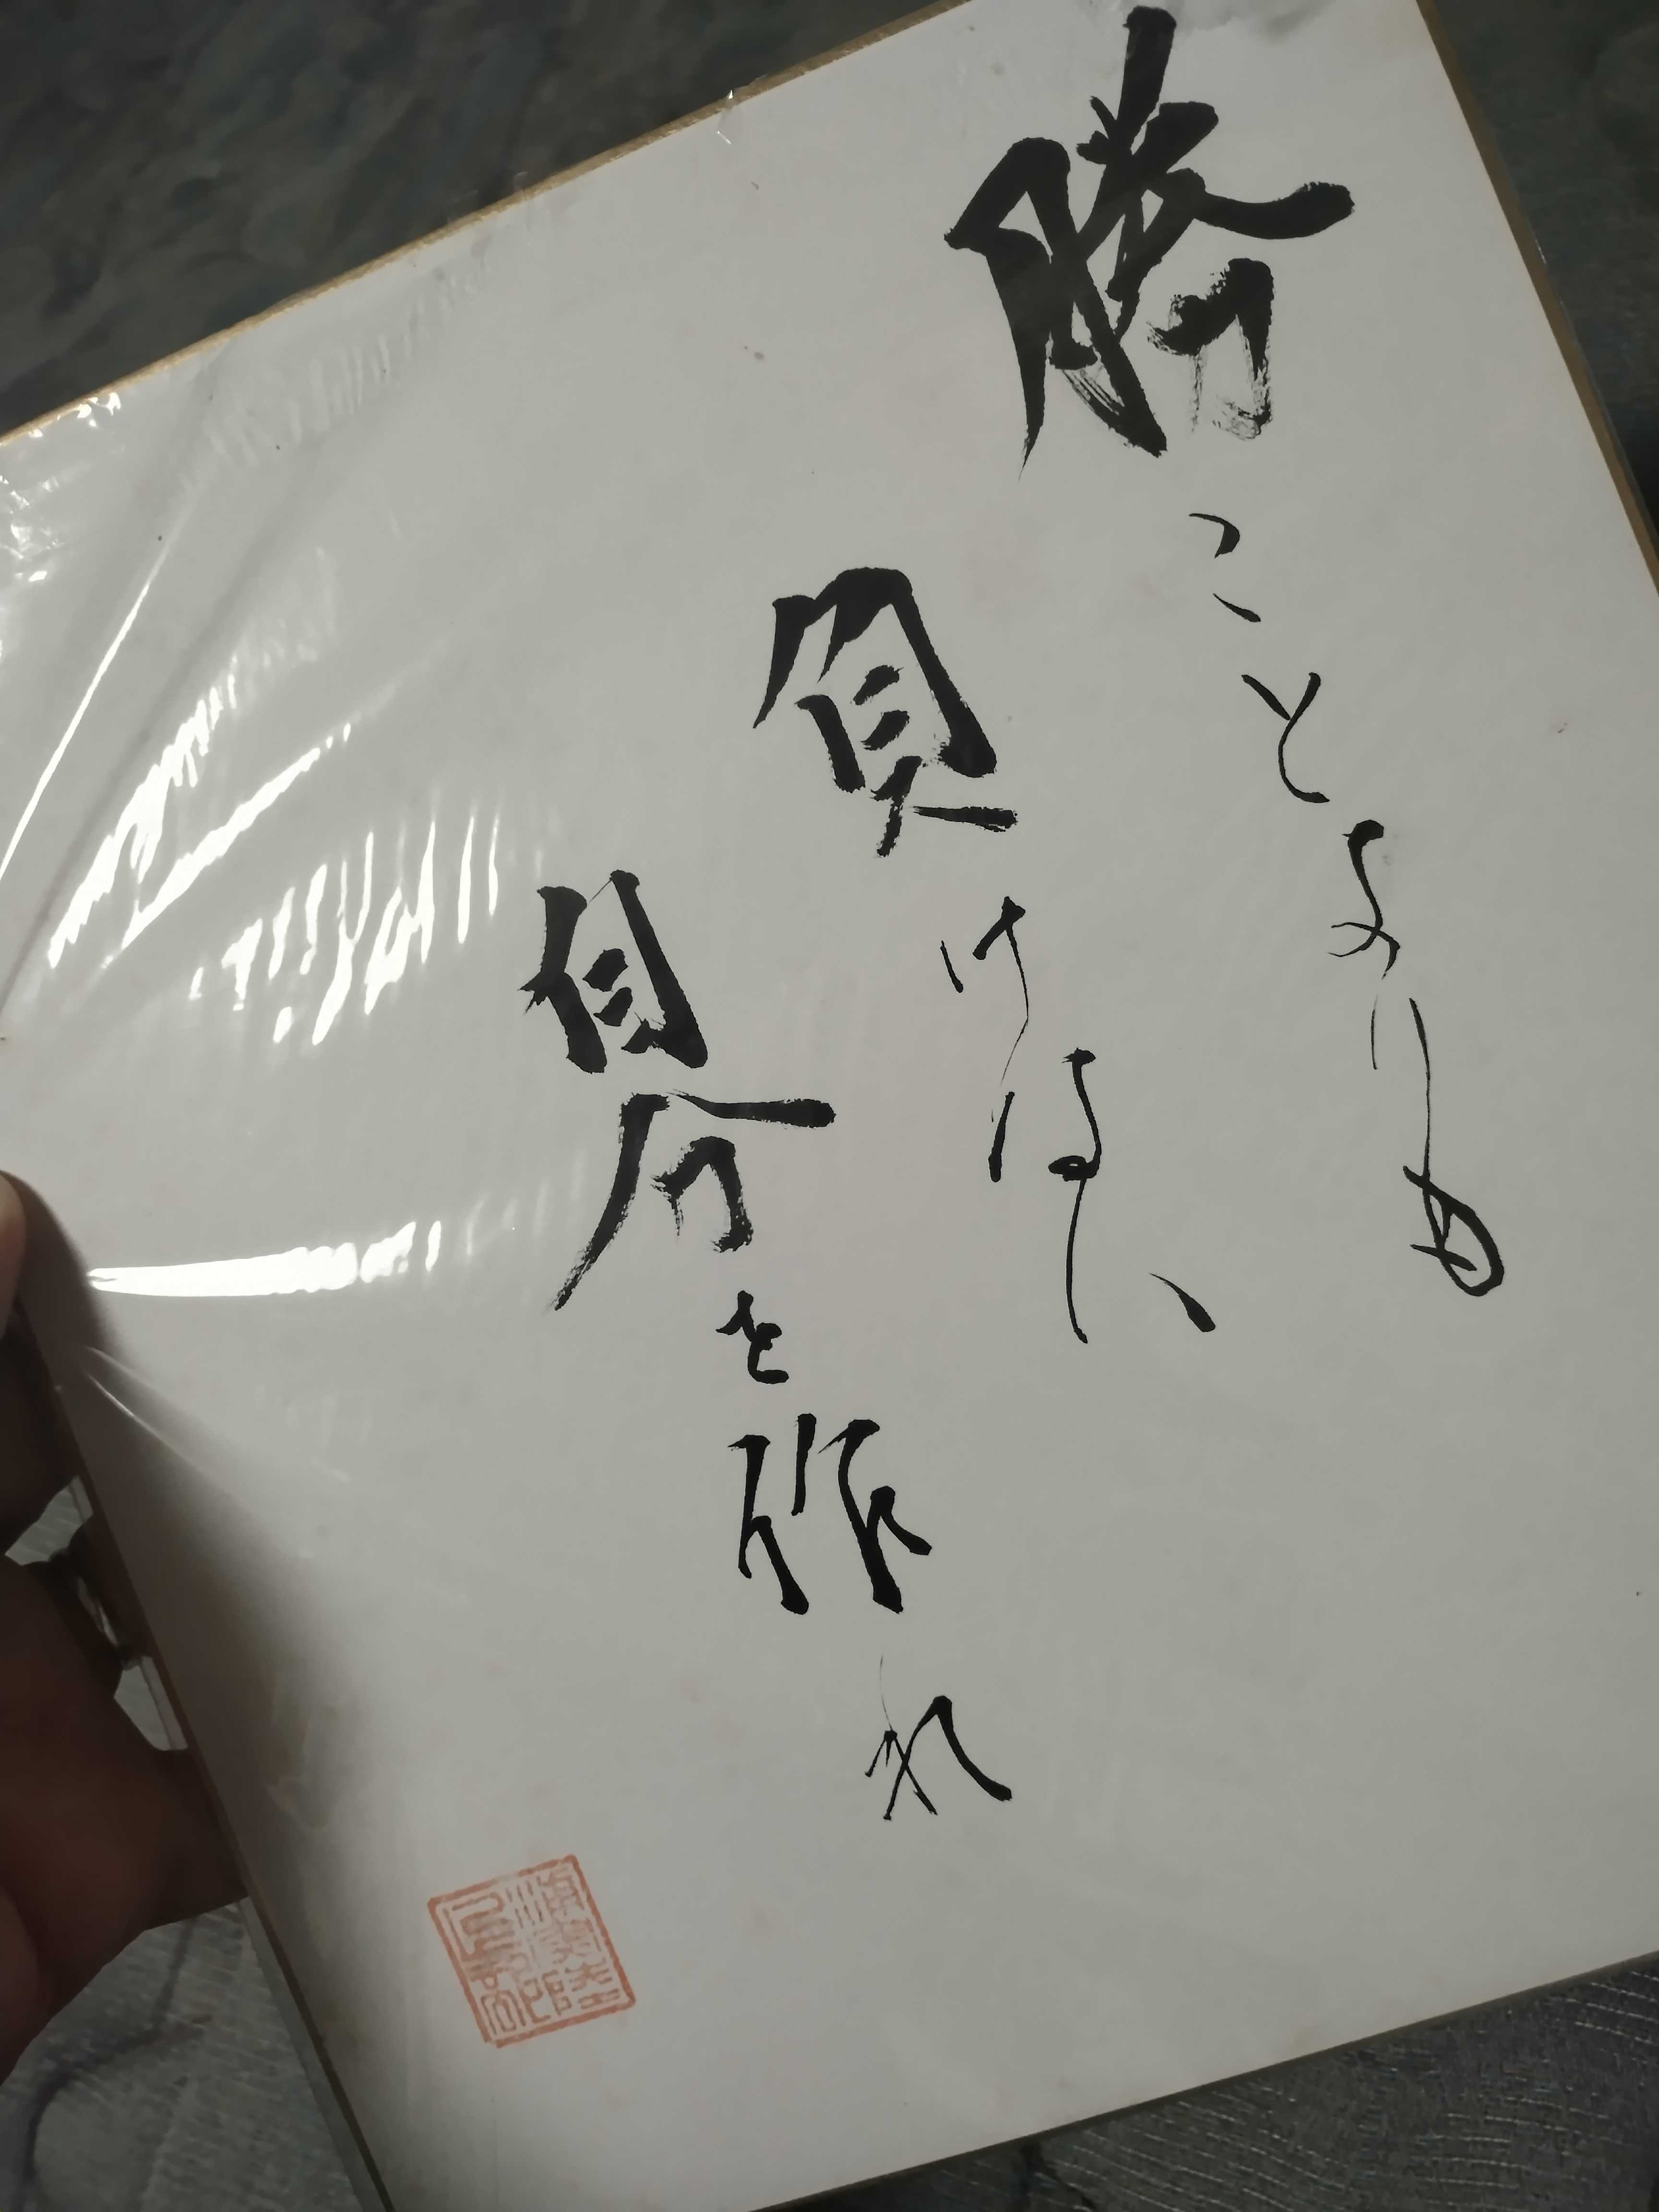 勝ことよりも
負けない
自分を作れ